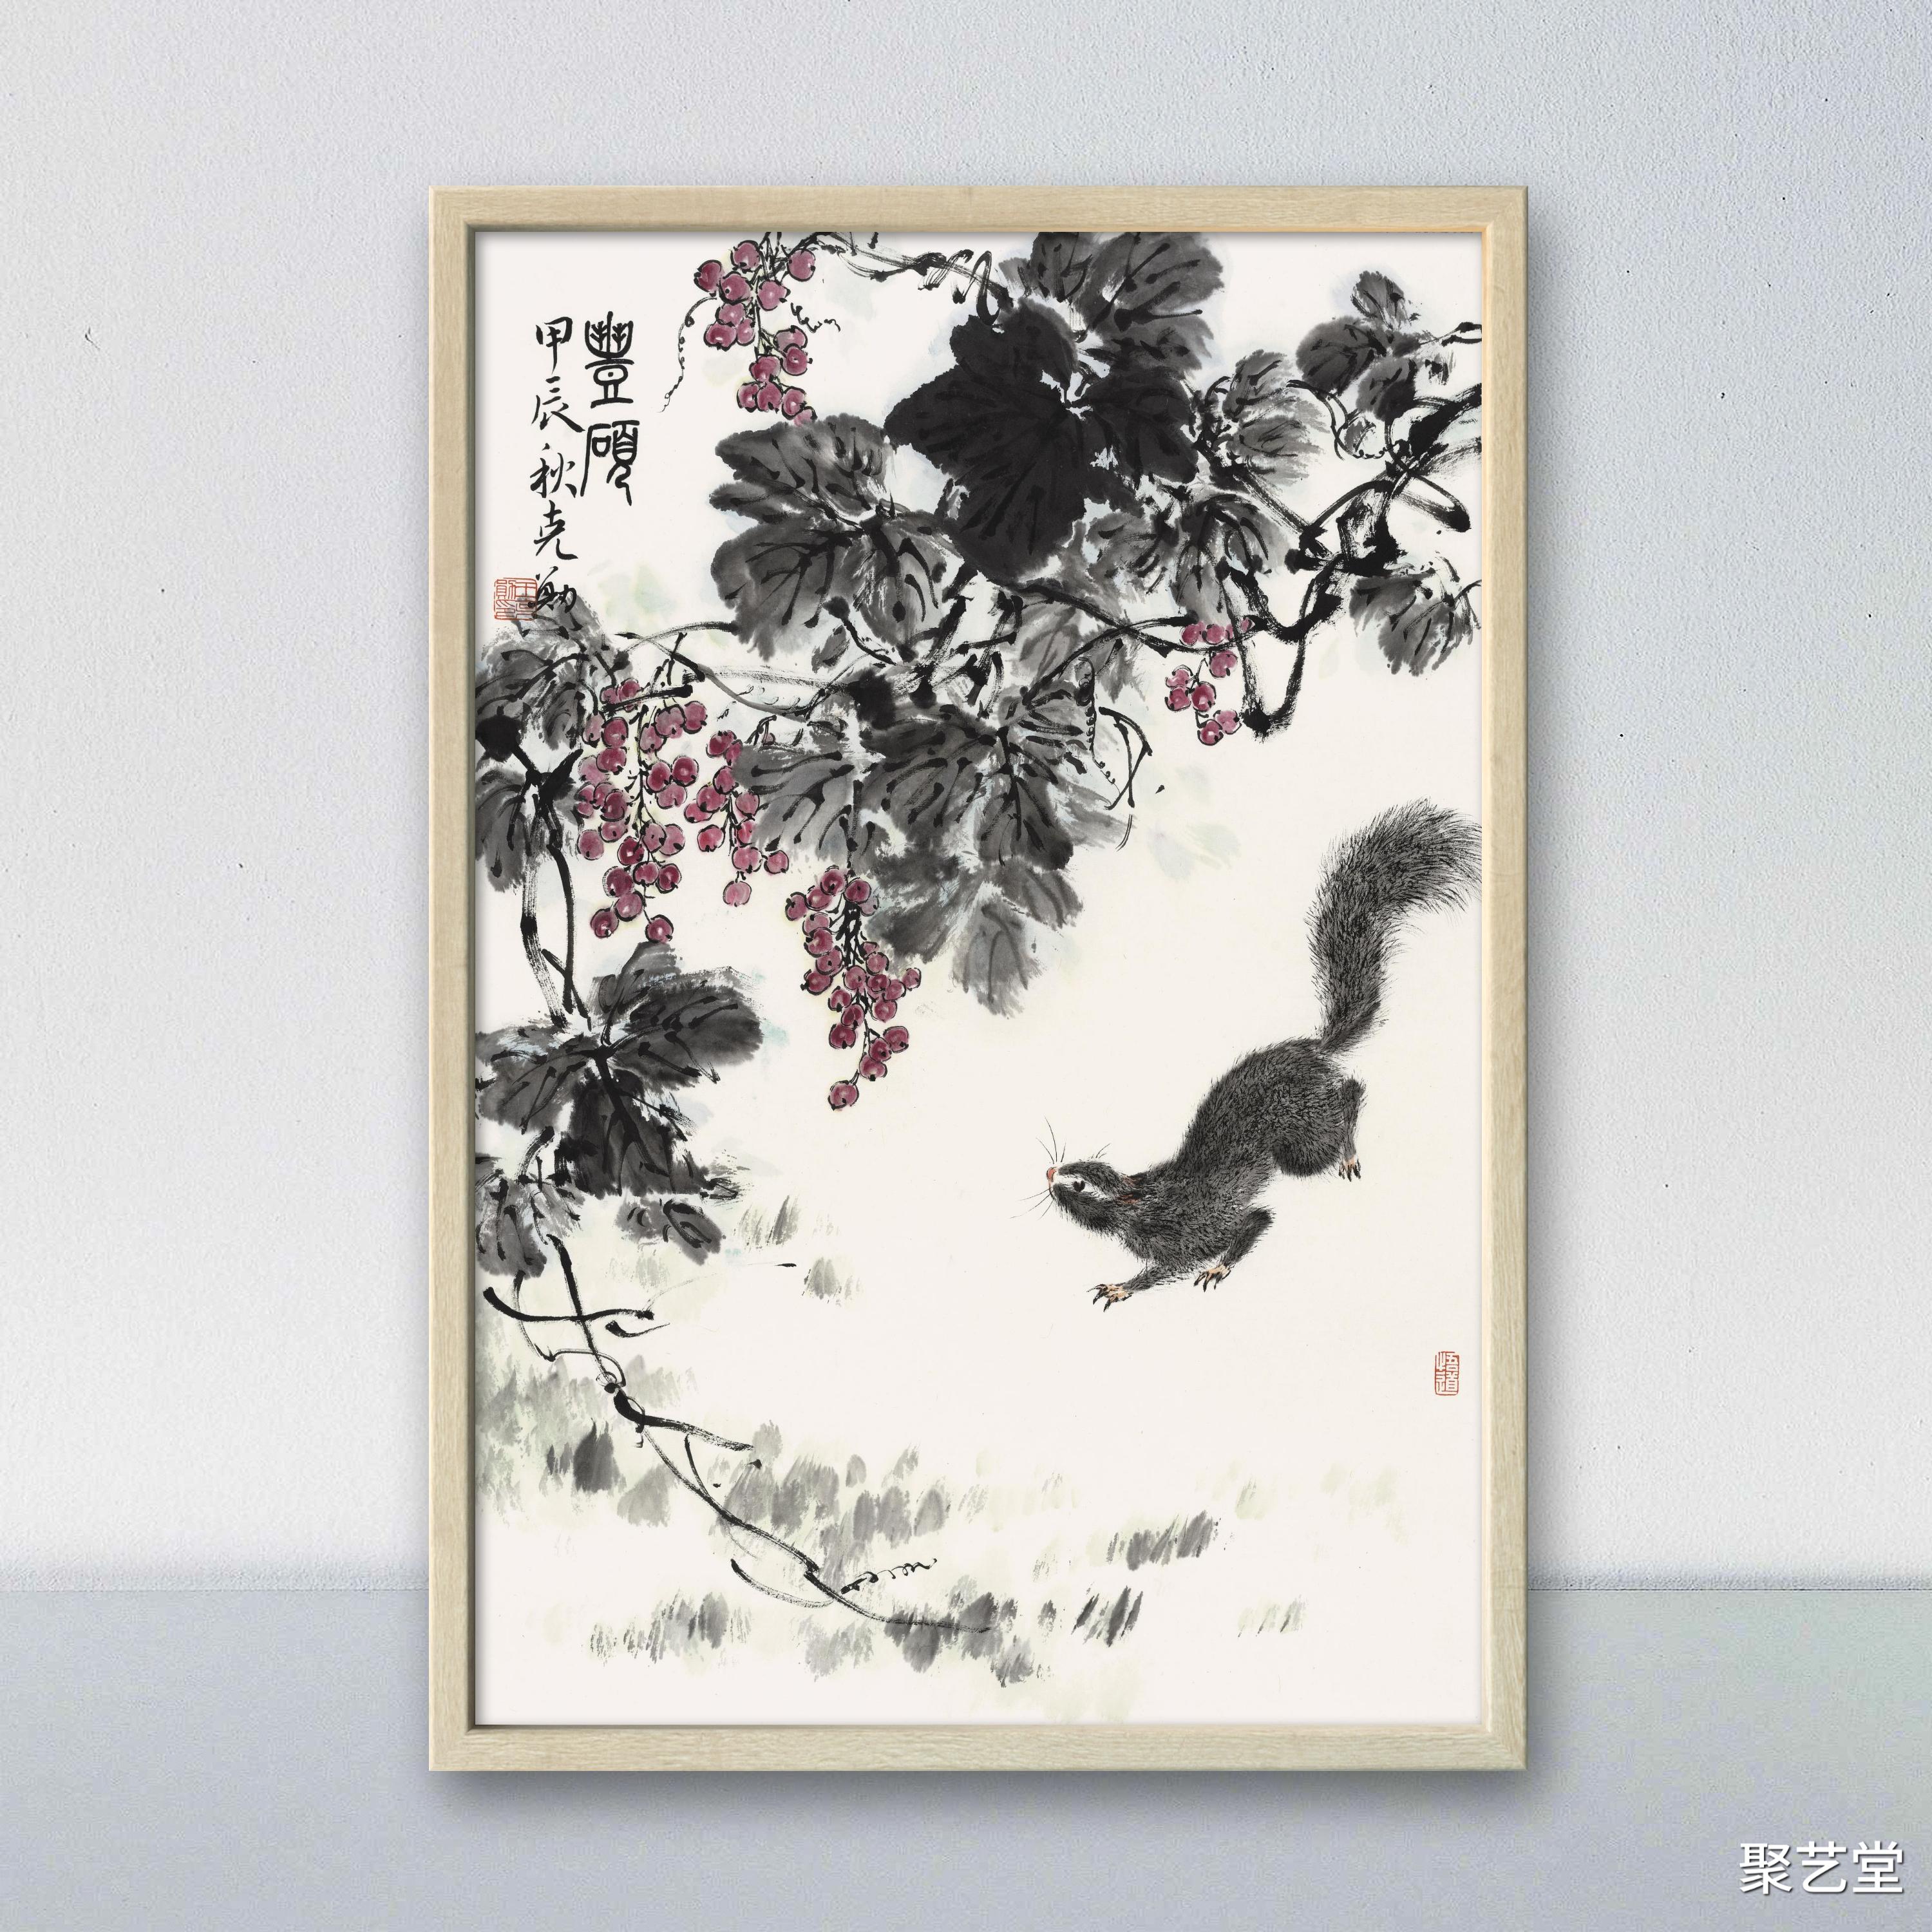 豐碩
甲辰秋克
悟道
聚艺堂